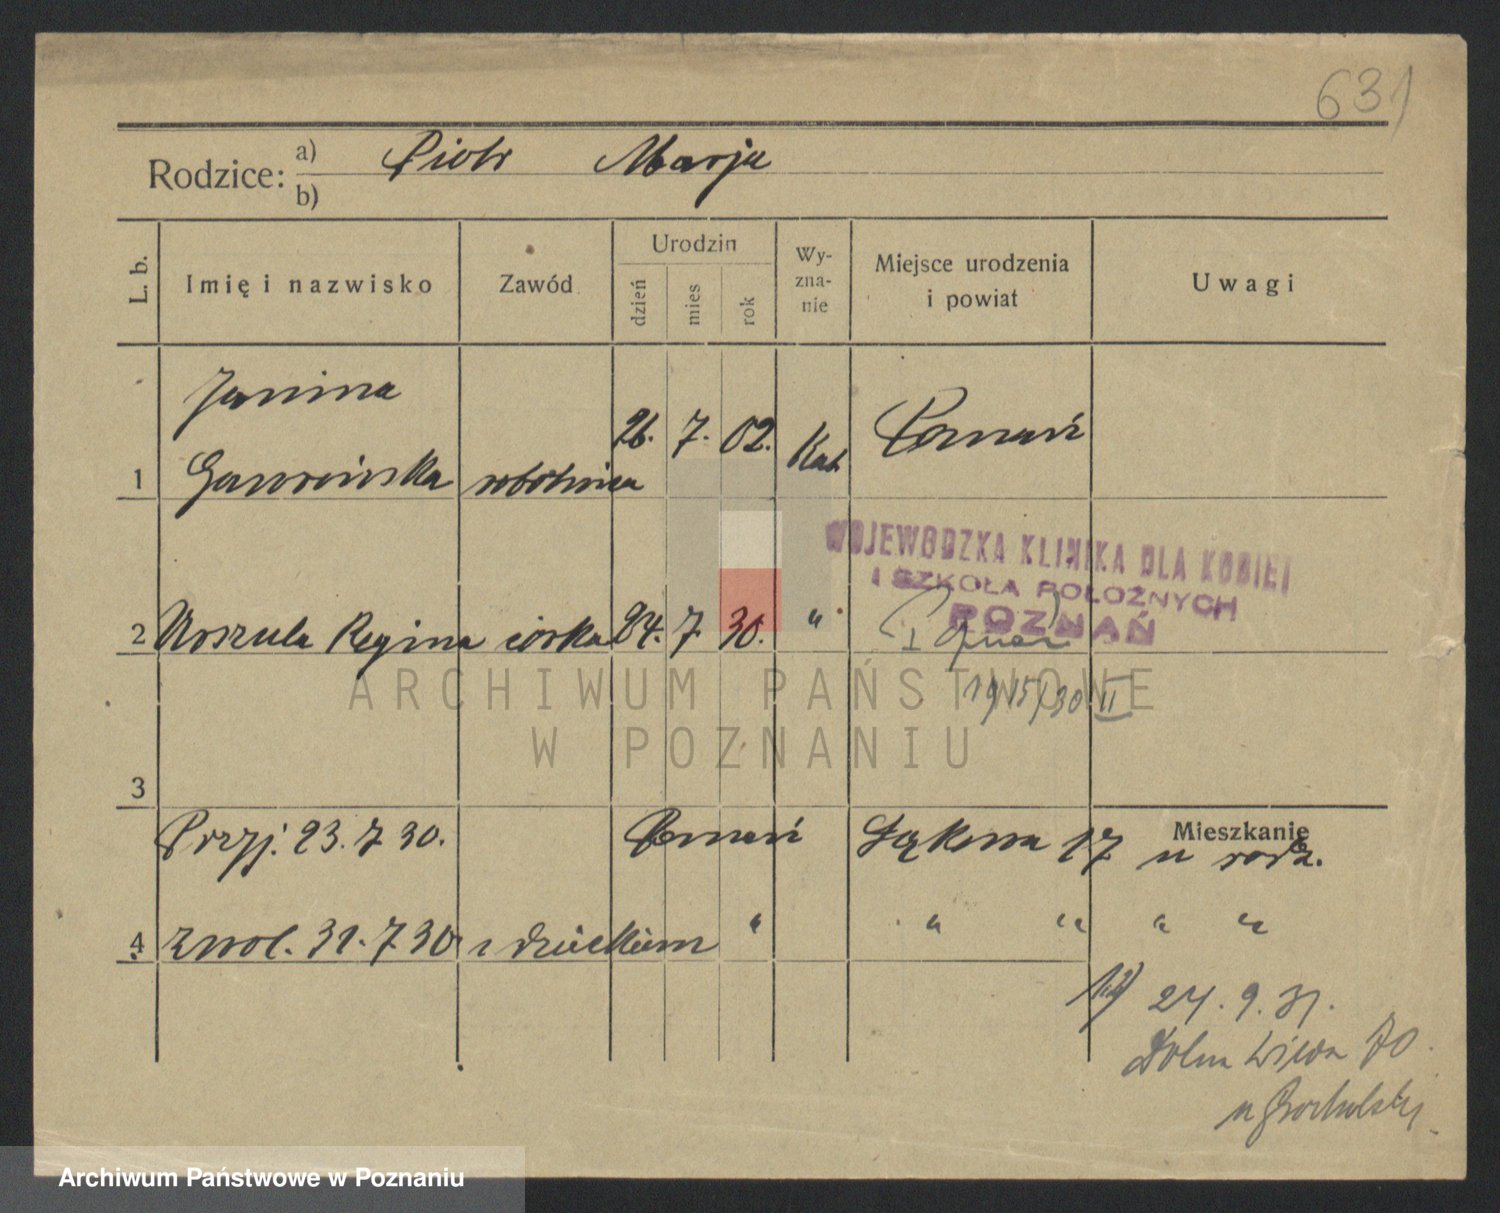 631
Rodzice: a) Piotr Marja
b)
L. b. Imię i nazwisko Zawód Urodzin dzień mies rok Wy-zna-nie Miejsce urodzenia i powiat Uwagi
Janina
1 Gawrońska robotnica 26. 7. 02. Kat. Poznań
WOJEWÓDZKA KLINIKA DLA KOBIET
I SZKOŁA POŁOŻNYCH
POZNAŃ
2 Urszula Regina córka 24. 7. 30. " Poznań
ARCHIWUM PAŃSTWOWE
1915/30 II
W POZNANIU
3
Mieszkanie
Przyj. 23. 7 30. Poznań Łąkowa 17 u rodz.
4 zwol. 31. 7 30 z dzieckiem " " " " "
1.2) 24. 9. 31.
Dolna Wilda 70.
u
Archiwum Państwowe w Poznaniu